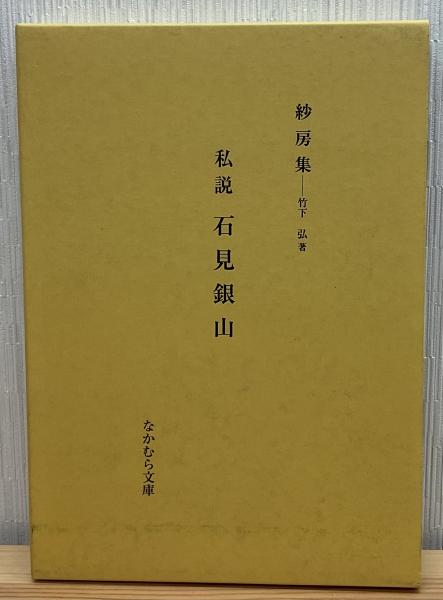 紗房集──竹下 弘 著
私説 石見銀山
なかむら文庫